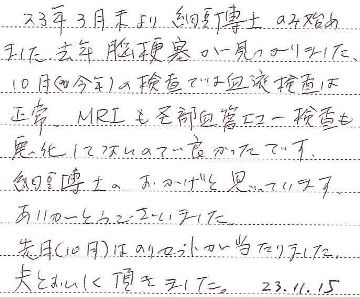 23年3月末より 細胞博士 のみ始め
ました 去年 脳梗塞が見つかりました、
10月(今年)の検査では血液検査は
正常 MRIも全部血管エコー検査も
悪化してないので良かったです。
細胞博士のおかげと思っています。
ありがとうございました
先日(10月)はカットが当たりました、
夫とおいしく頂きました。 23.11.15